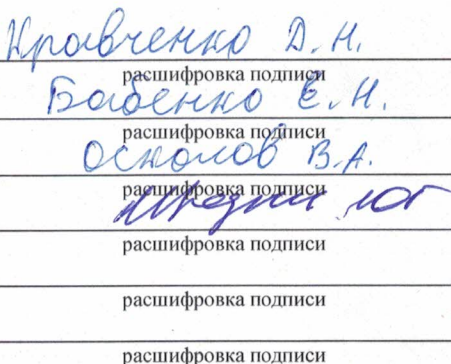 Кравченко Д.Н.
расшифровка подписи
Бабенко Е.Н.
расшифровка подписи
Осколов В.А.
расшифровка подписи
Ю Г
расшифровка подписи
расшифровка подписи
расшифровка подписи